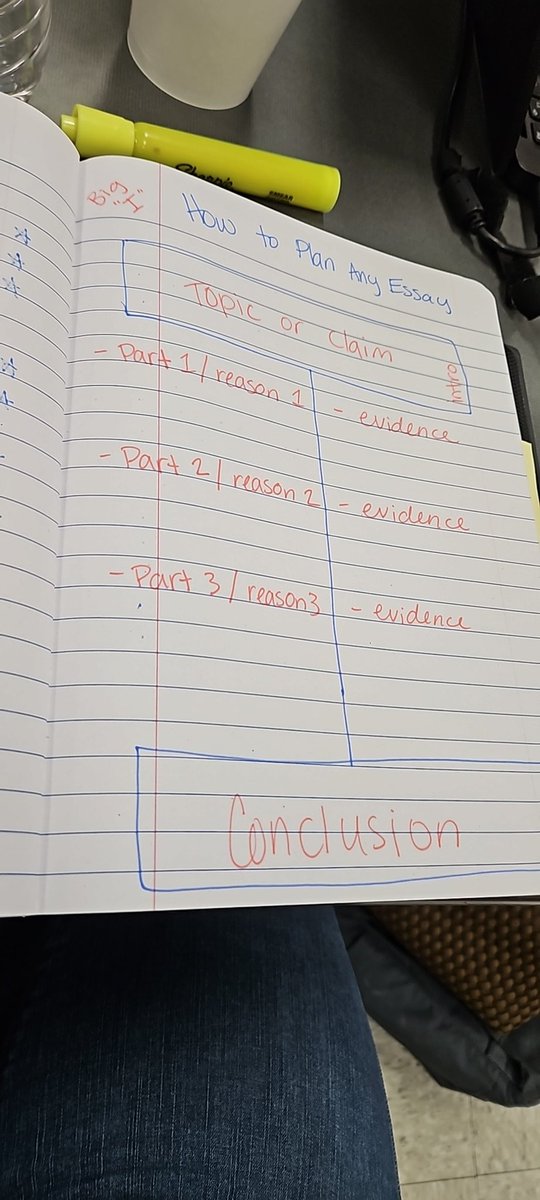 Sharpie
SMEAR
Big
"I"
How to Plan Any Essay
Topic or Claim
intro
- Part 1 / reason 1
- evidence
- Part 2 / reason 2
- evidence
- Part 3 / reason3
- evidence
Conclusion